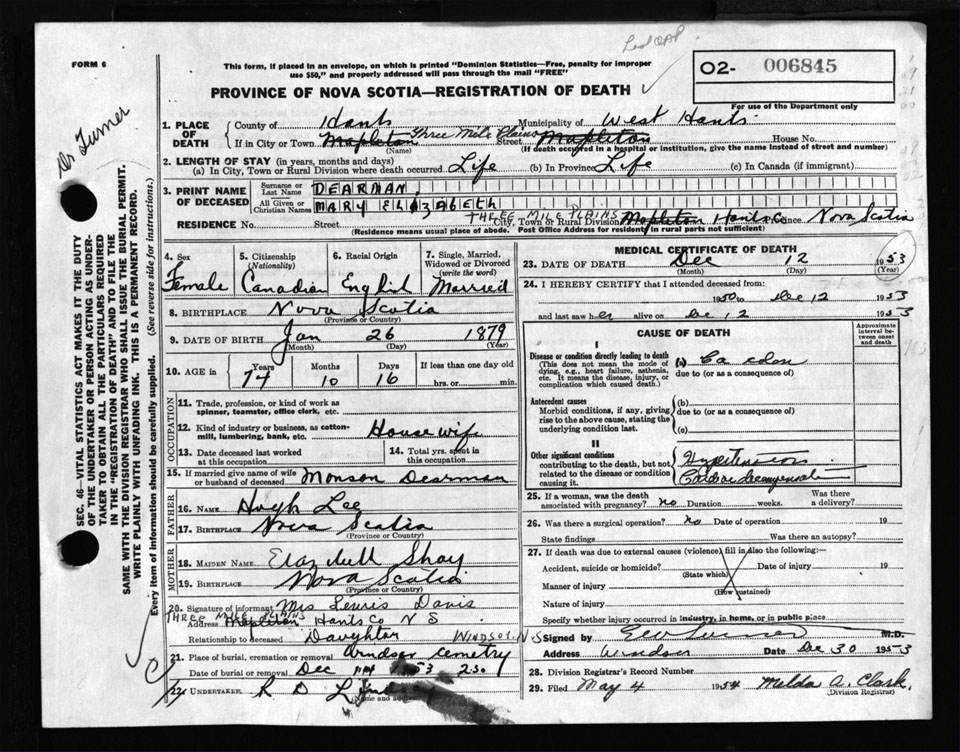 FORM 6
This form, if placed in an envelope, on which is printed "Dominion Statistics—Free, penalty for improper
use $50," and properly addressed will pass through the mail "FREE"
O2- 006845
PROVINCE OF NOVA SCOTIA—REGISTRATION OF DEATH
For use of the Department only
Dr Turner
SEC. 46—VITAL STATISTICS ACT MAKES IT THE DUTY
OF THE UNDERTAKER OR PERSON ACTING AS UNDER-
TAKER TO OBTAIN ALL THE PARTICULARS REQUIRED
IN THE "REGISTRATION OF DEATH" AND TO FILE THE
SAME WITH THE DIVISION REGISTRAR WHO SHALL ISSUE THE BURIAL PERMIT.
WRITE PLAINLY WITH UNFADING INK. THIS IS A PERMANENT RECORD.
Every item of information should be carefully supplied. (See reverse side for instructions.)
1. PLACE OF DEATH
County of Hants Municipality of West Hants
If in City or Town Mapleton Three Mile Plains Street Mapleton House No.
(Name) (If death occurred in a hospital or institution, give the name instead of street and number)
2. LENGTH OF STAY (in years, months and days)
(a) In City, Town or Rural Division where death occurred Life (b) In Province Life (c) In Canada (if immigrant)
3. PRINT NAME OF DECEASED
Surname or Last Name DEARMAN
All Given or Christian Names MARY ELIZABETH
THREE MILE PLAINS
RESIDENCE No. Street City, Town or Rural Division Mapleton Hants Co Province Nova Scotia
(Residence means usual place of abode. Post Office Address for resident in rural parts not sufficient)
4. Sex Female
5. Citizenship (Nationality) Canadian
6. Racial Origin English
7. Single, Married, Widowed or Divorced (write the word) Married
8. BIRTHPLACE Nova Scotia
(Province or Country)
9. DATE OF BIRTH Jan 26 1879
(Month) (Day) (Year)
10. AGE in Years 74 Months 10 Days 16 If less than one day old
hrs. or min.
OCCUPATION
11. Trade, profession, or kind of work as
spinner, teamster, office clerk, etc.
12. Kind of industry or business, as cotton-
mill, lumbering, bank, etc. House wife
13. Date deceased last worked at this occupation
14. Total yrs. spent in this occupation
15. If married give name of wife
or husband of deceased Monson Dearman
FATHER
16. NAME Hugh Lee
17. BIRTHPLACE Nova Scotia
(Province or Country)
MOTHER
18. MAIDEN NAME Shay
19. BIRTHPLACE Nova Scotia
(Province or Country)
20. Signature of informant Mrs Lewis Davis
THREE MILE PLAINS
Address Mapleton Hants Co N S
Relationship to deceased Daughter
WINDSOR, N.S
21. Place of burial, cremation or removal Windsor Cemetry
Date of burial or removal Dec 14 53 2 30
22. UNDERTAKER R D
(Name and address)
MEDICAL CERTIFICATE OF DEATH
23. DATE OF DEATH Dec 12 1953
(Month) (Day) (Year)
24. I HEREBY CERTIFY that I attended deceased from:
1950 to Dec 12 1953
and last saw her alive on Dec 12 1953
CAUSE OF DEATH
Approximate interval between onset and death
I
Disease or condition directly leading to death
(This does not mean the mode of
dying, e.g., heart failure, asthenia,
etc. It means the disease, injury, or
complication which caused death.)
(a) Ca colon
due to (or as a consequence of)
Antecedent causes
Morbid conditions, if any, giving
rise to the above cause, stating the
underlying condition last.
(b)
due to (or as a consequence of)
(c)
II
Other significant conditions
contributing to the death, but not
related to the disease or condition
causing it.
Hypertension
Cardiac decompensation
25. If a woman, was the death
associated with pregnancy? no Duration weeks. Was there a delivery?
26. Was there a surgical operation? no Date of operation 19
State findings Was there an autopsy?
27. If death was due to external causes (violence) fill in also the following:
Accident, suicide or homicide? Date of injury 19
(State which)
Manner of injury
(How sustained)
Nature of injury
Specify whether injury occurred in industry, in home, or in public place
Signed by E W Turner M.D.
Address Windsor Date Dec 30 1953
28. Division Registrar's Record Number
29. Filed May 4 1954 Melda A. Clark
(Division Registrar)